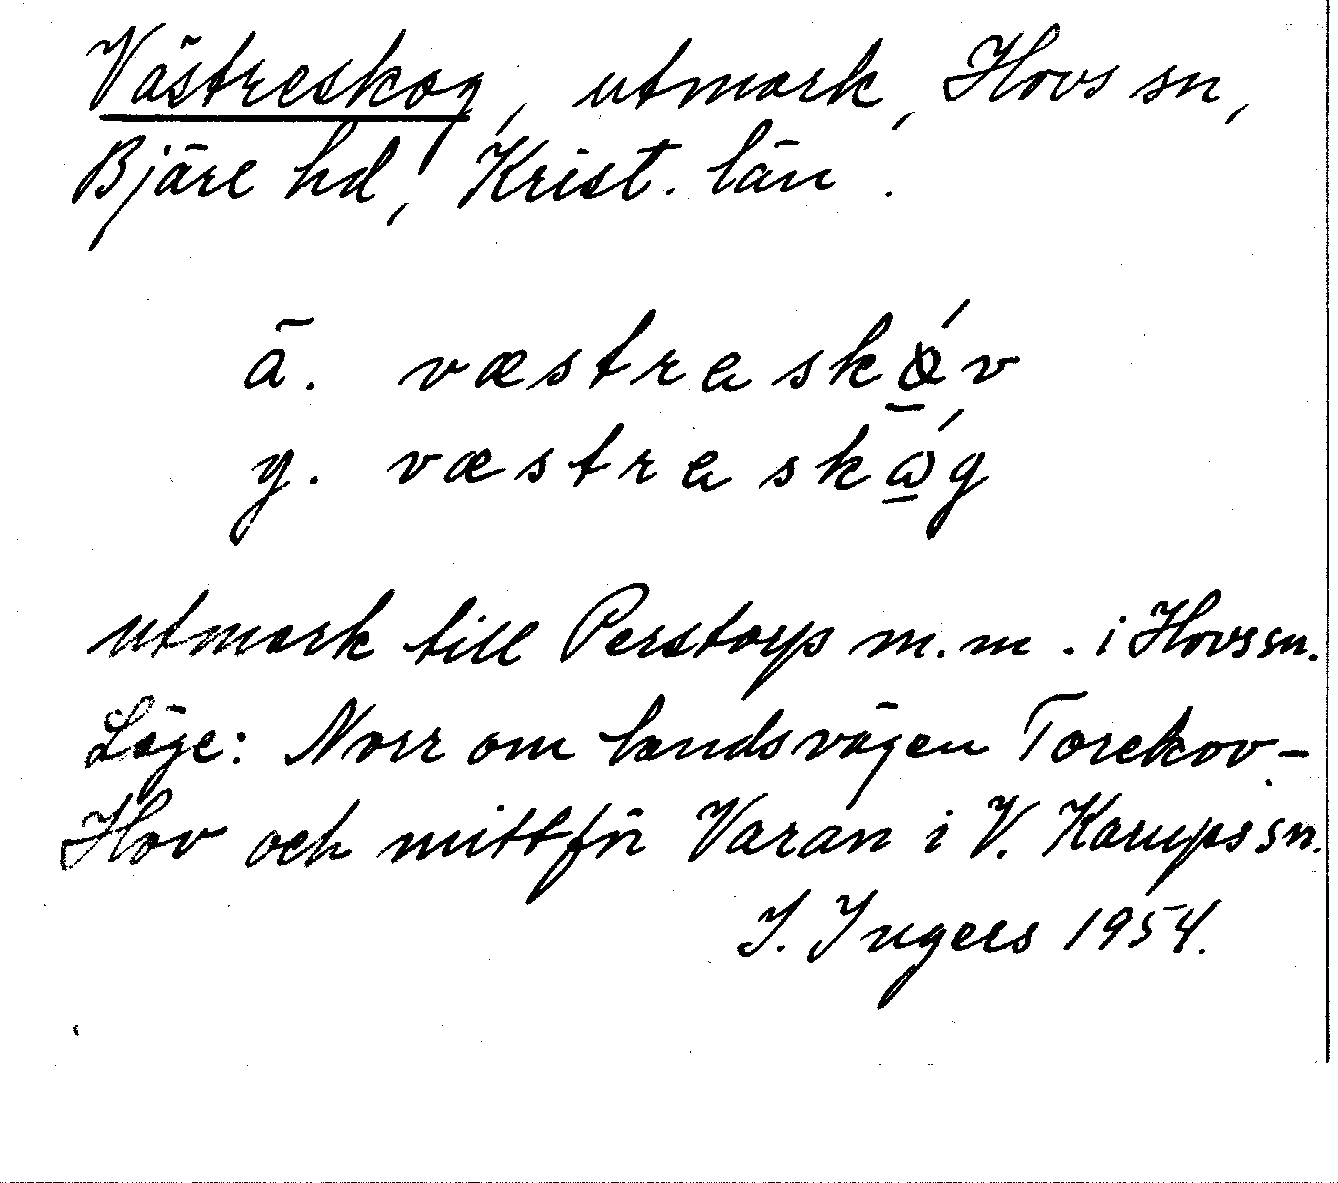 Västreskog, utmark, Hovs sn,
Bjäre hd, Krist. län.
ä. væstra skǿ̱v
y. væstra skώ̱g
utmark till Perstorp m.m. i Hovs sn.
Läge: Norr om landsvägen Torekov-
Hov och mittför Varan i V. Karups sn.
I. Ingers 1954.